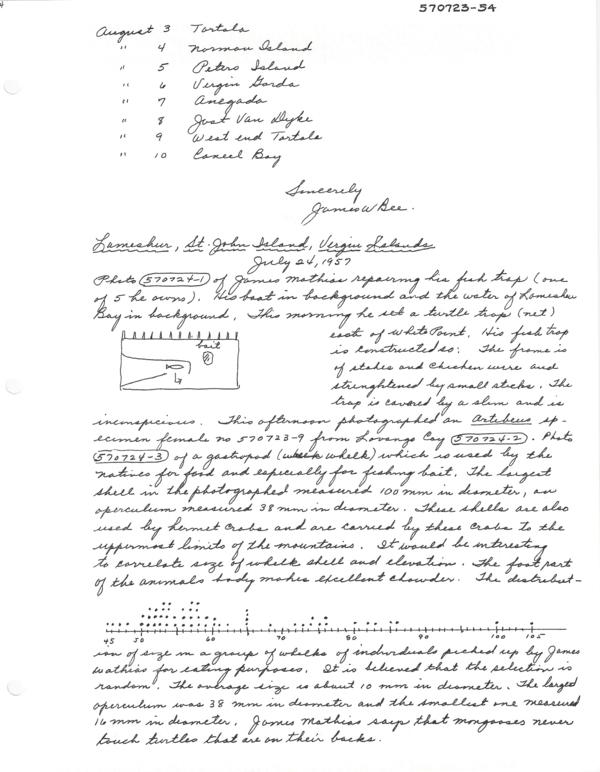 570723-54
August 3 Tortola
" 4 Norman Island
" 5 Peters Island
" 6 Virgin Gorda
" 7 Anegada
" 8 Jost Van Dyke
" 9 West end Tortola
" 10 Caneel Bay
Sincerely
James W Bee.
Lameshur, St. John Island, Virgin Islands
July 24, 1957
Photo 570724-1 of James Mathias repairing his fish trap (one
of 5 he owns). His boat in background and the water of Lameshur
Bay in background. This morning he set a turtle trap (net)
east of White Point. His fish trap
bait
is constructed so: The frame is
of stakes and chicken wire and
strenghtened by small sticks. The
trap is covered by a slum and is
inconspicious. This afternoon photographed an Artibeus sp-
ecimen female no 570723-9 from Lovango Cay 570724-2. Photo
570724-3 of a gastropod (whelk) which is used by the
natives for food and especially for fishing bait. The largest
shell in the photographed measured 100 mm in diameter, an
operculum measured 38 mm in diameter. These shells are also
used by hermet crabs and are carried by these crabs to the
uppermost limits of the mountains. It would be interesting
to correlate size of whelk shell and elevation. The foot part
of the animals body makes excellent chowder. The distribut-
45 50 60 70 80 90 100 105
ion of size in a group of whelks of individuals picked up by James
Mathias for eating purposes. It is believed that the selection is
random. The average size is about 10 mm in diameter. The larged
operculum was 38 mm in diameter and the smallest one measured
16 mm in diameter. James Mathias says that mongooses never
touch turtles that are on their backs.